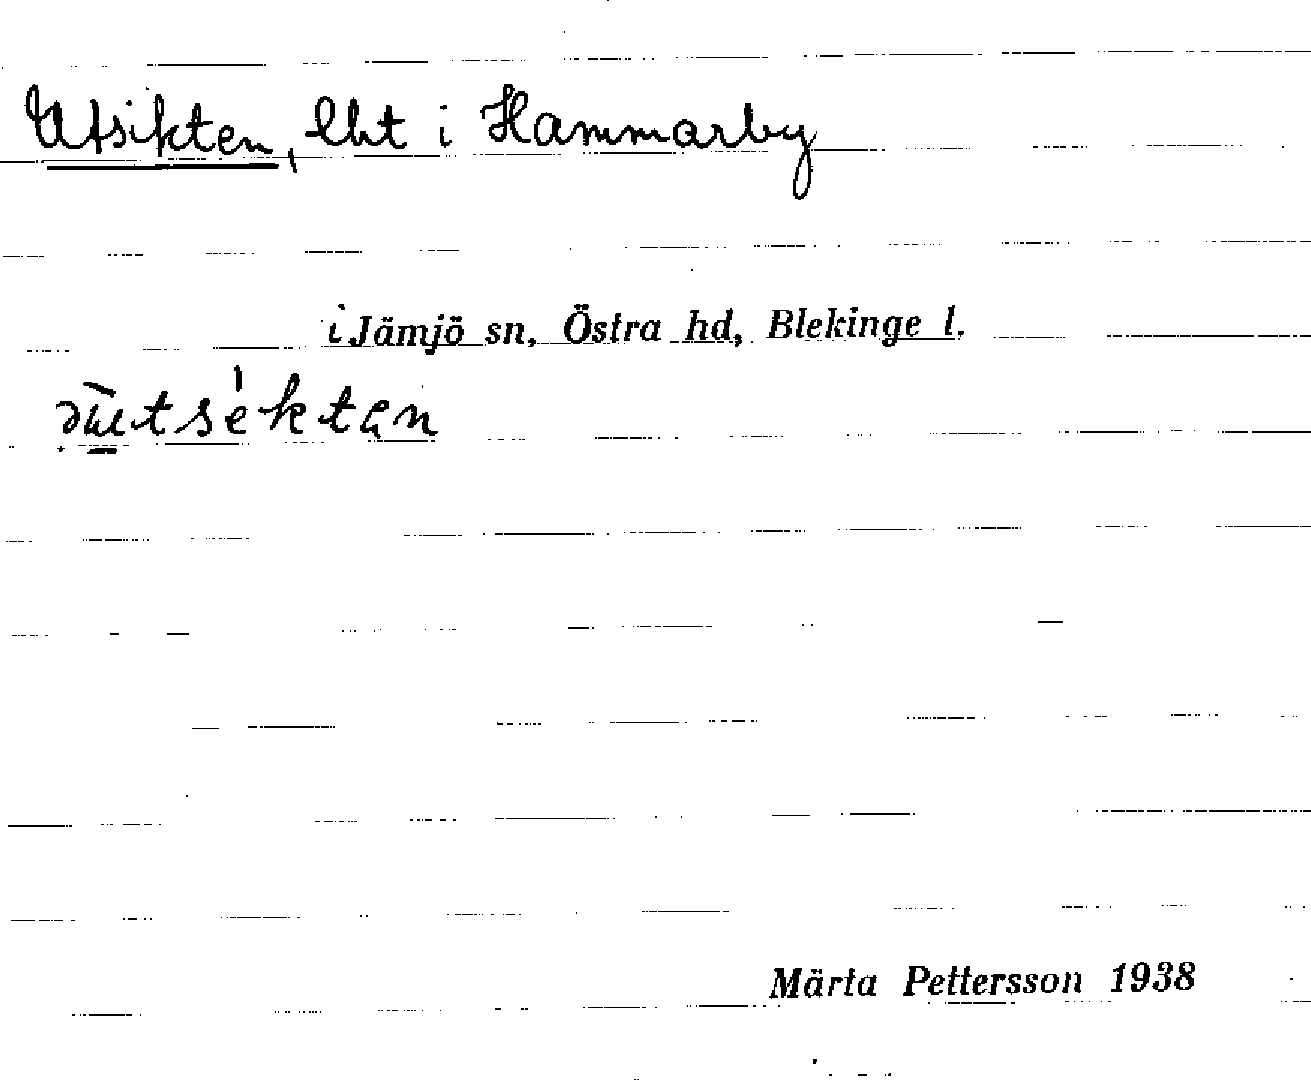 Utsikten, lht i Hammarby
i Jämjö sn, Östra hd, Blekinge l.
Märta Pettersson 1938